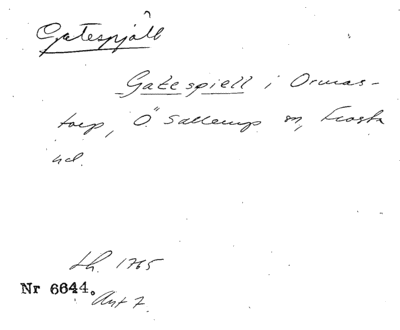 Gatespjäll
Gatespiell i Ormas-
torp, Ö. Sallerup sn, Frosta
hd.
Lh. 1765
Nr 6644.
Akt 7.